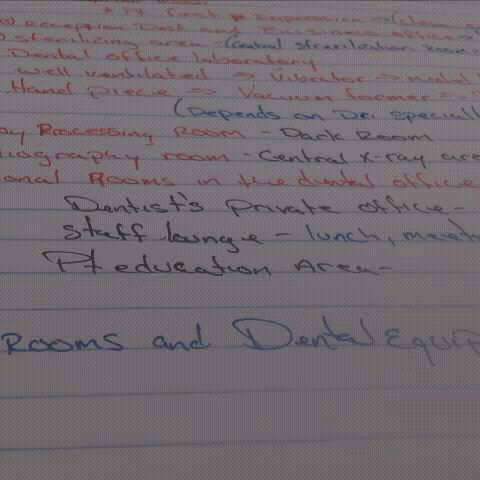 * 1st first Impression → (clean
Reception Desk and Business office →
sterilizing area - (Central sterilization room
Dental office laboratory
well ventilated → Vibrator → model
Hand Piece → Vacuum former =
(Depends on Dr. special
ay Processing Room - Dark Room
iography room - Central x-ray are
ional Rooms in the dental office
Dentist's Private office -
Staff lounge - lunch, meet
Pt education Area-
Rooms and Dental Equip